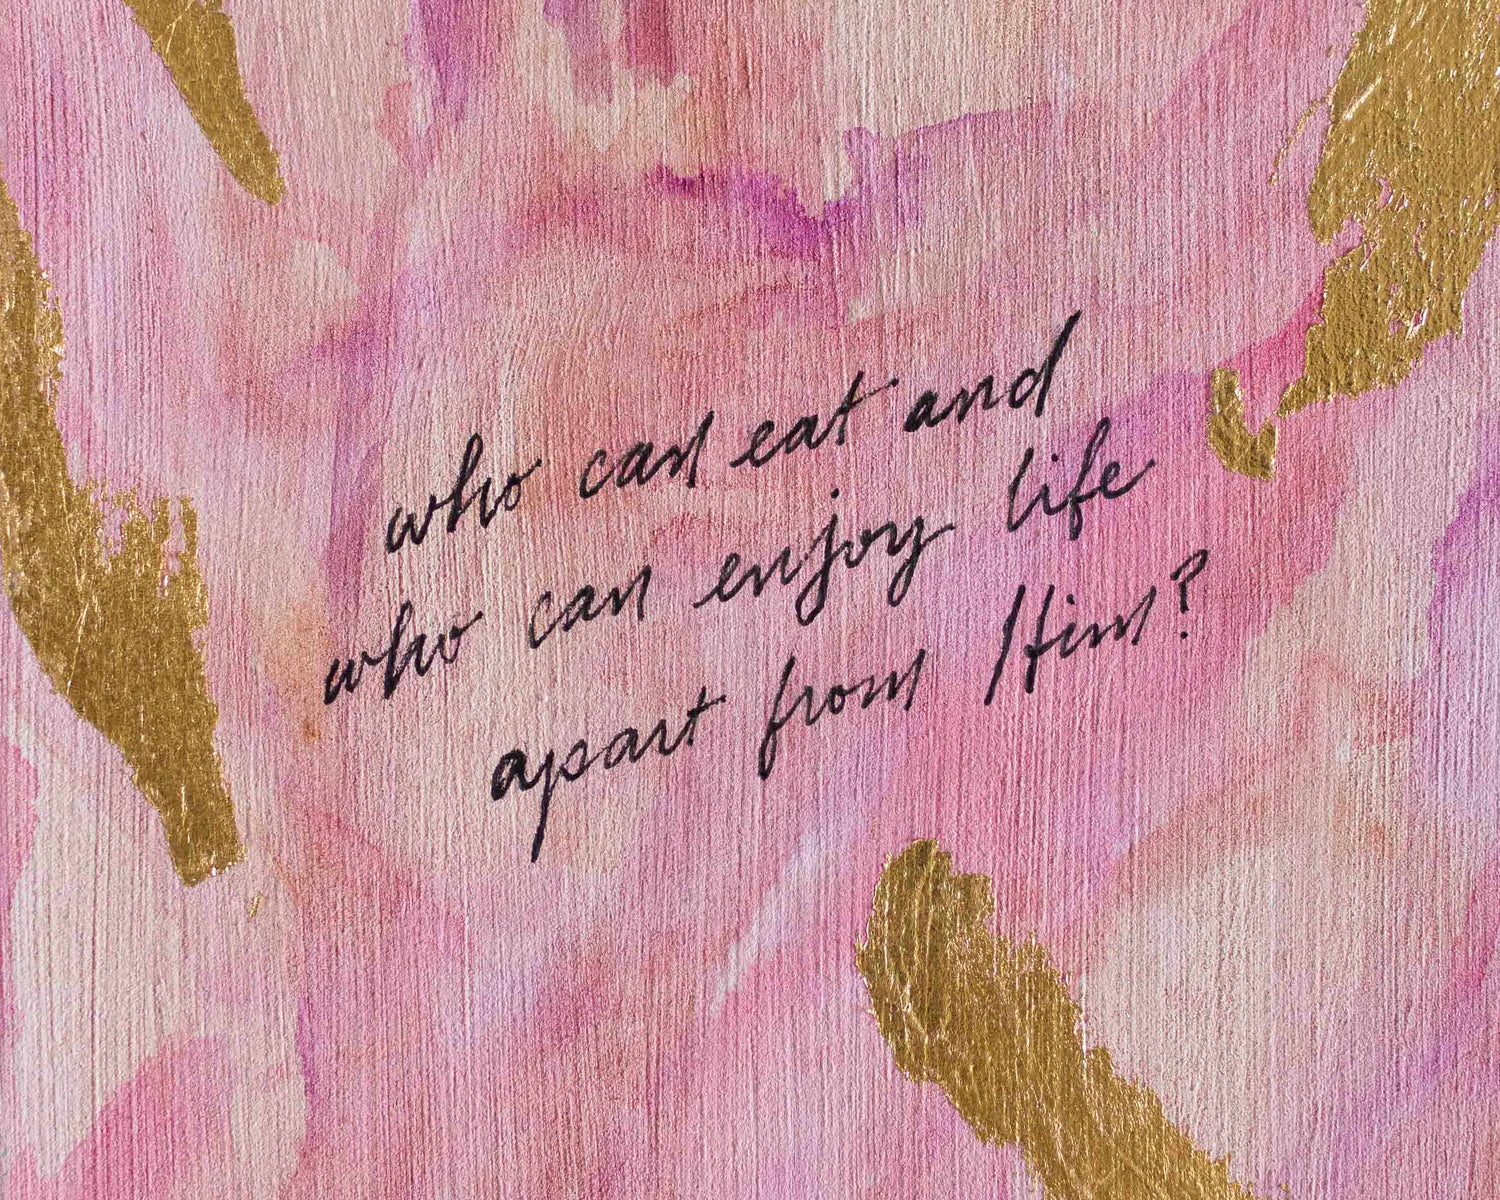 who can eat and
who can enjoy life
apart from Him?